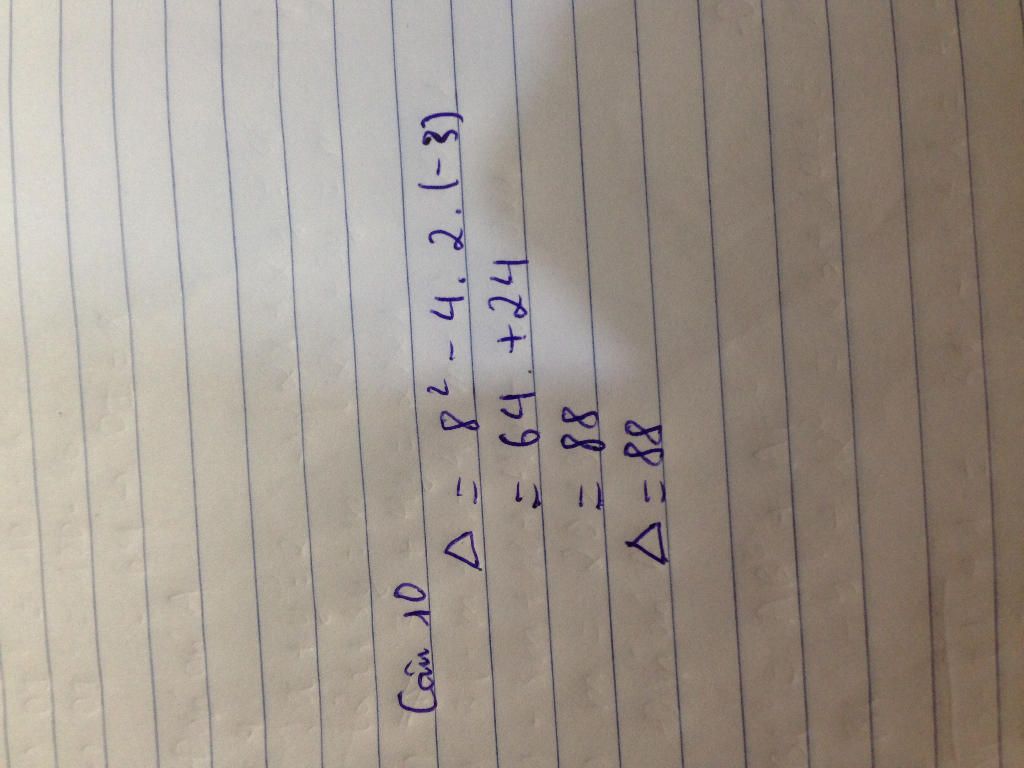 Câu 10
Δ = 8² - 4 . 2 . (-3)
= 64 + 24
= 88
Δ = 88